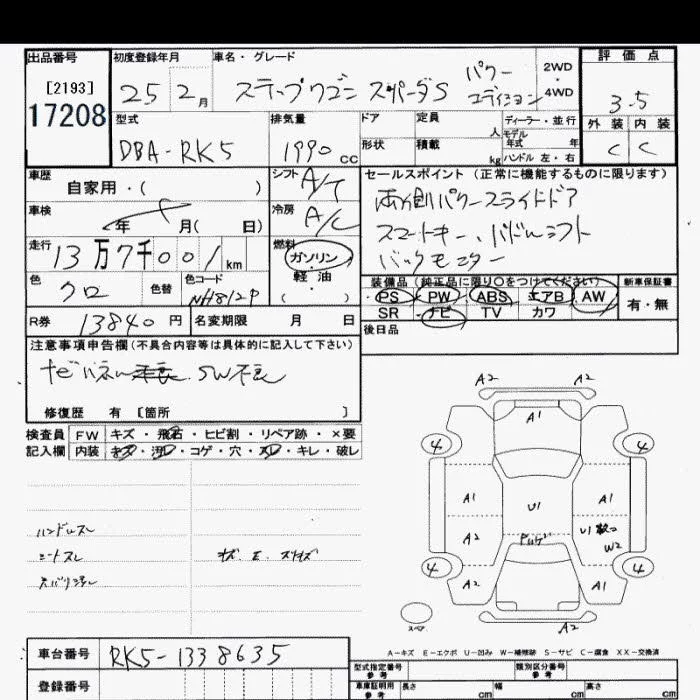 出品番号 初度登録年月 車名・グレード 評価点
[2193]
17208
25 2月 ステップワゴン スパーダS パワーエディション 2WD・4WD
3.5
外装 内装
C C
型式 排気量 ドア 定員 人 ディーラー・並行
モデル年式 年
DBA-RK5 1990cc 形状 積載 kg ハンドル 左・右
車歴 自家用・( )
シフト A/T
セールスポイント(正常に機能するものに限ります)
両側パワースライドドア
スマートキー、パドルシフト
バックモニター
車検 年 月( 日)
冷房 A/C
走行 13万7千001km
燃料 ガソリン・軽油・( )
色 クロ 色替 色コード NH812P
装備品(純正品に限り○をつけてください) 新車保証書
PS・PW・ABS・エアB・AW
SR・ナビ・TV・カワ
有・無
R券 13840円 名変期限 月 日
後日品
注意事項申告欄(不具合内容等は具体的に記入して下さい)
SW不良
修復歴 有 [箇所 ]
検査員 FW キズ・飛石・ヒビ割・リペア跡・×要
記入欄 内装 キズ・汚レ・コゲ・穴・スレ・キレ・破レ
ハンドルスレ
シートスレ
A2 A2
A1
4 4
A1 A1
U1
A2 U1 W2
4 4
A2 A1
A2
スペア
A-キズ E-エクボ U-凹み W-補修跡 S-サビ C-腐食 XX-交換済
車台番号 RK5-1338635
型式指定番号 参考 類別区分番号 参考
登録番号
車庫証明用 参考 長さ cm 幅 cm 高さ cm